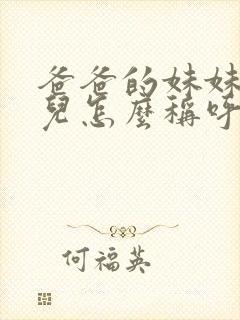 爸爸的妹妹
兒怎麼稱呼
何福英